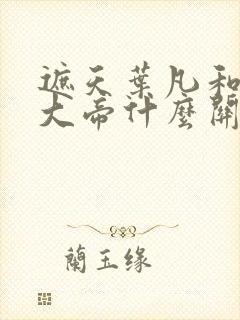 遮天葉凡和
大帝什麼關
蘭玉缘